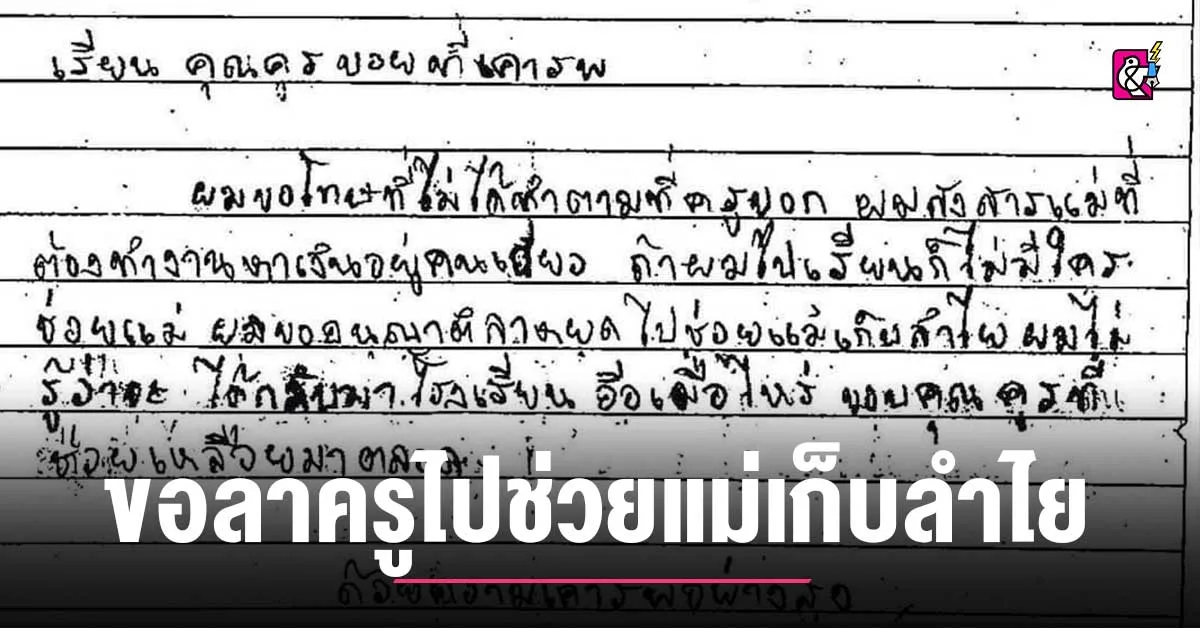 เรียน คุณคูร บอยที่เคารพ
ผมขอโทษที่ไม่ได้ทำตามที่ครูบอก ผมสงสารแม่ที่
ต้องทำงานหาเงินอยู่คนเดียว ถ้าผมไปเรียนก็ไม่มีใคร
ช่วยแม่ ผมขออนุญาติลาหยุดไปช่วยแม่เก็บลำไย ผมไม่
รู้ว่าจะ ได้กลับมาโรงเรียน อีกเมื่อไหร่ ขอบคุณคูรที่
ช่วยเหลือผมมาตลอด
ขอลาครูไปช่วยแม่เก็บลำไย
ด้วยความเคารพอย่างสูง